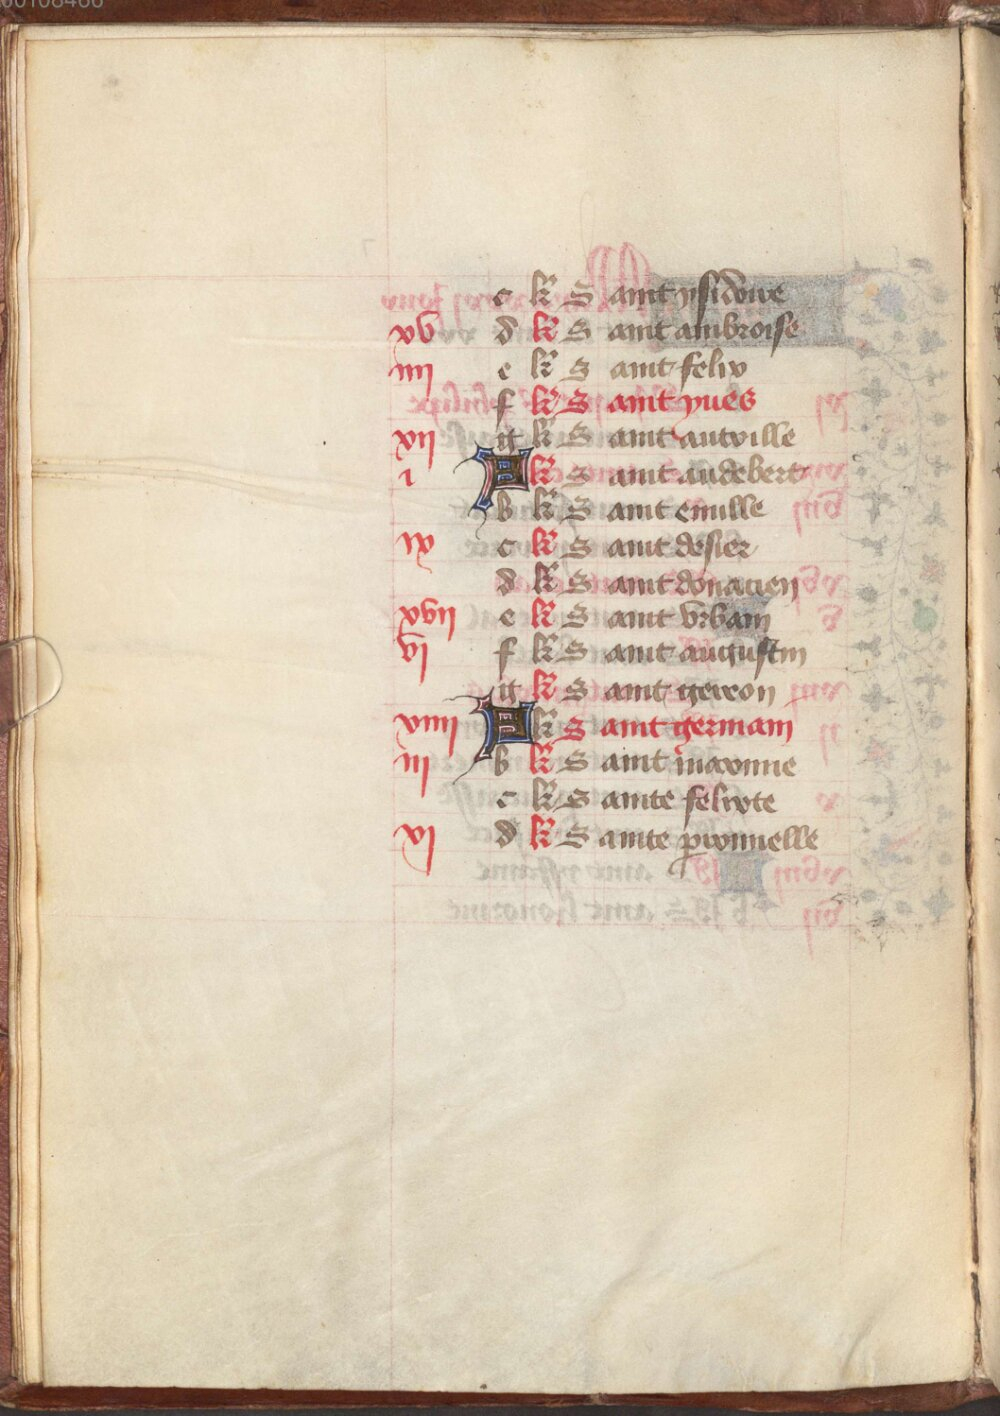 c kł Saint ysidoire
xv d kł Saint ambroise
iiii e kł Saint felix
f kł Saint yues
xii g kł Saint autville
i A kł Saint audebert
b kł Saint emille
ix c kł Saint desier
d kł Saint donacien
xvii e kł Saint vrbain
vi f kł Saint augustin
g kł Saint gereon
xiiii A kł Saint germain
iii b kł Saint
c kł Sainte felixte
xi d kł Sainte peronnelle